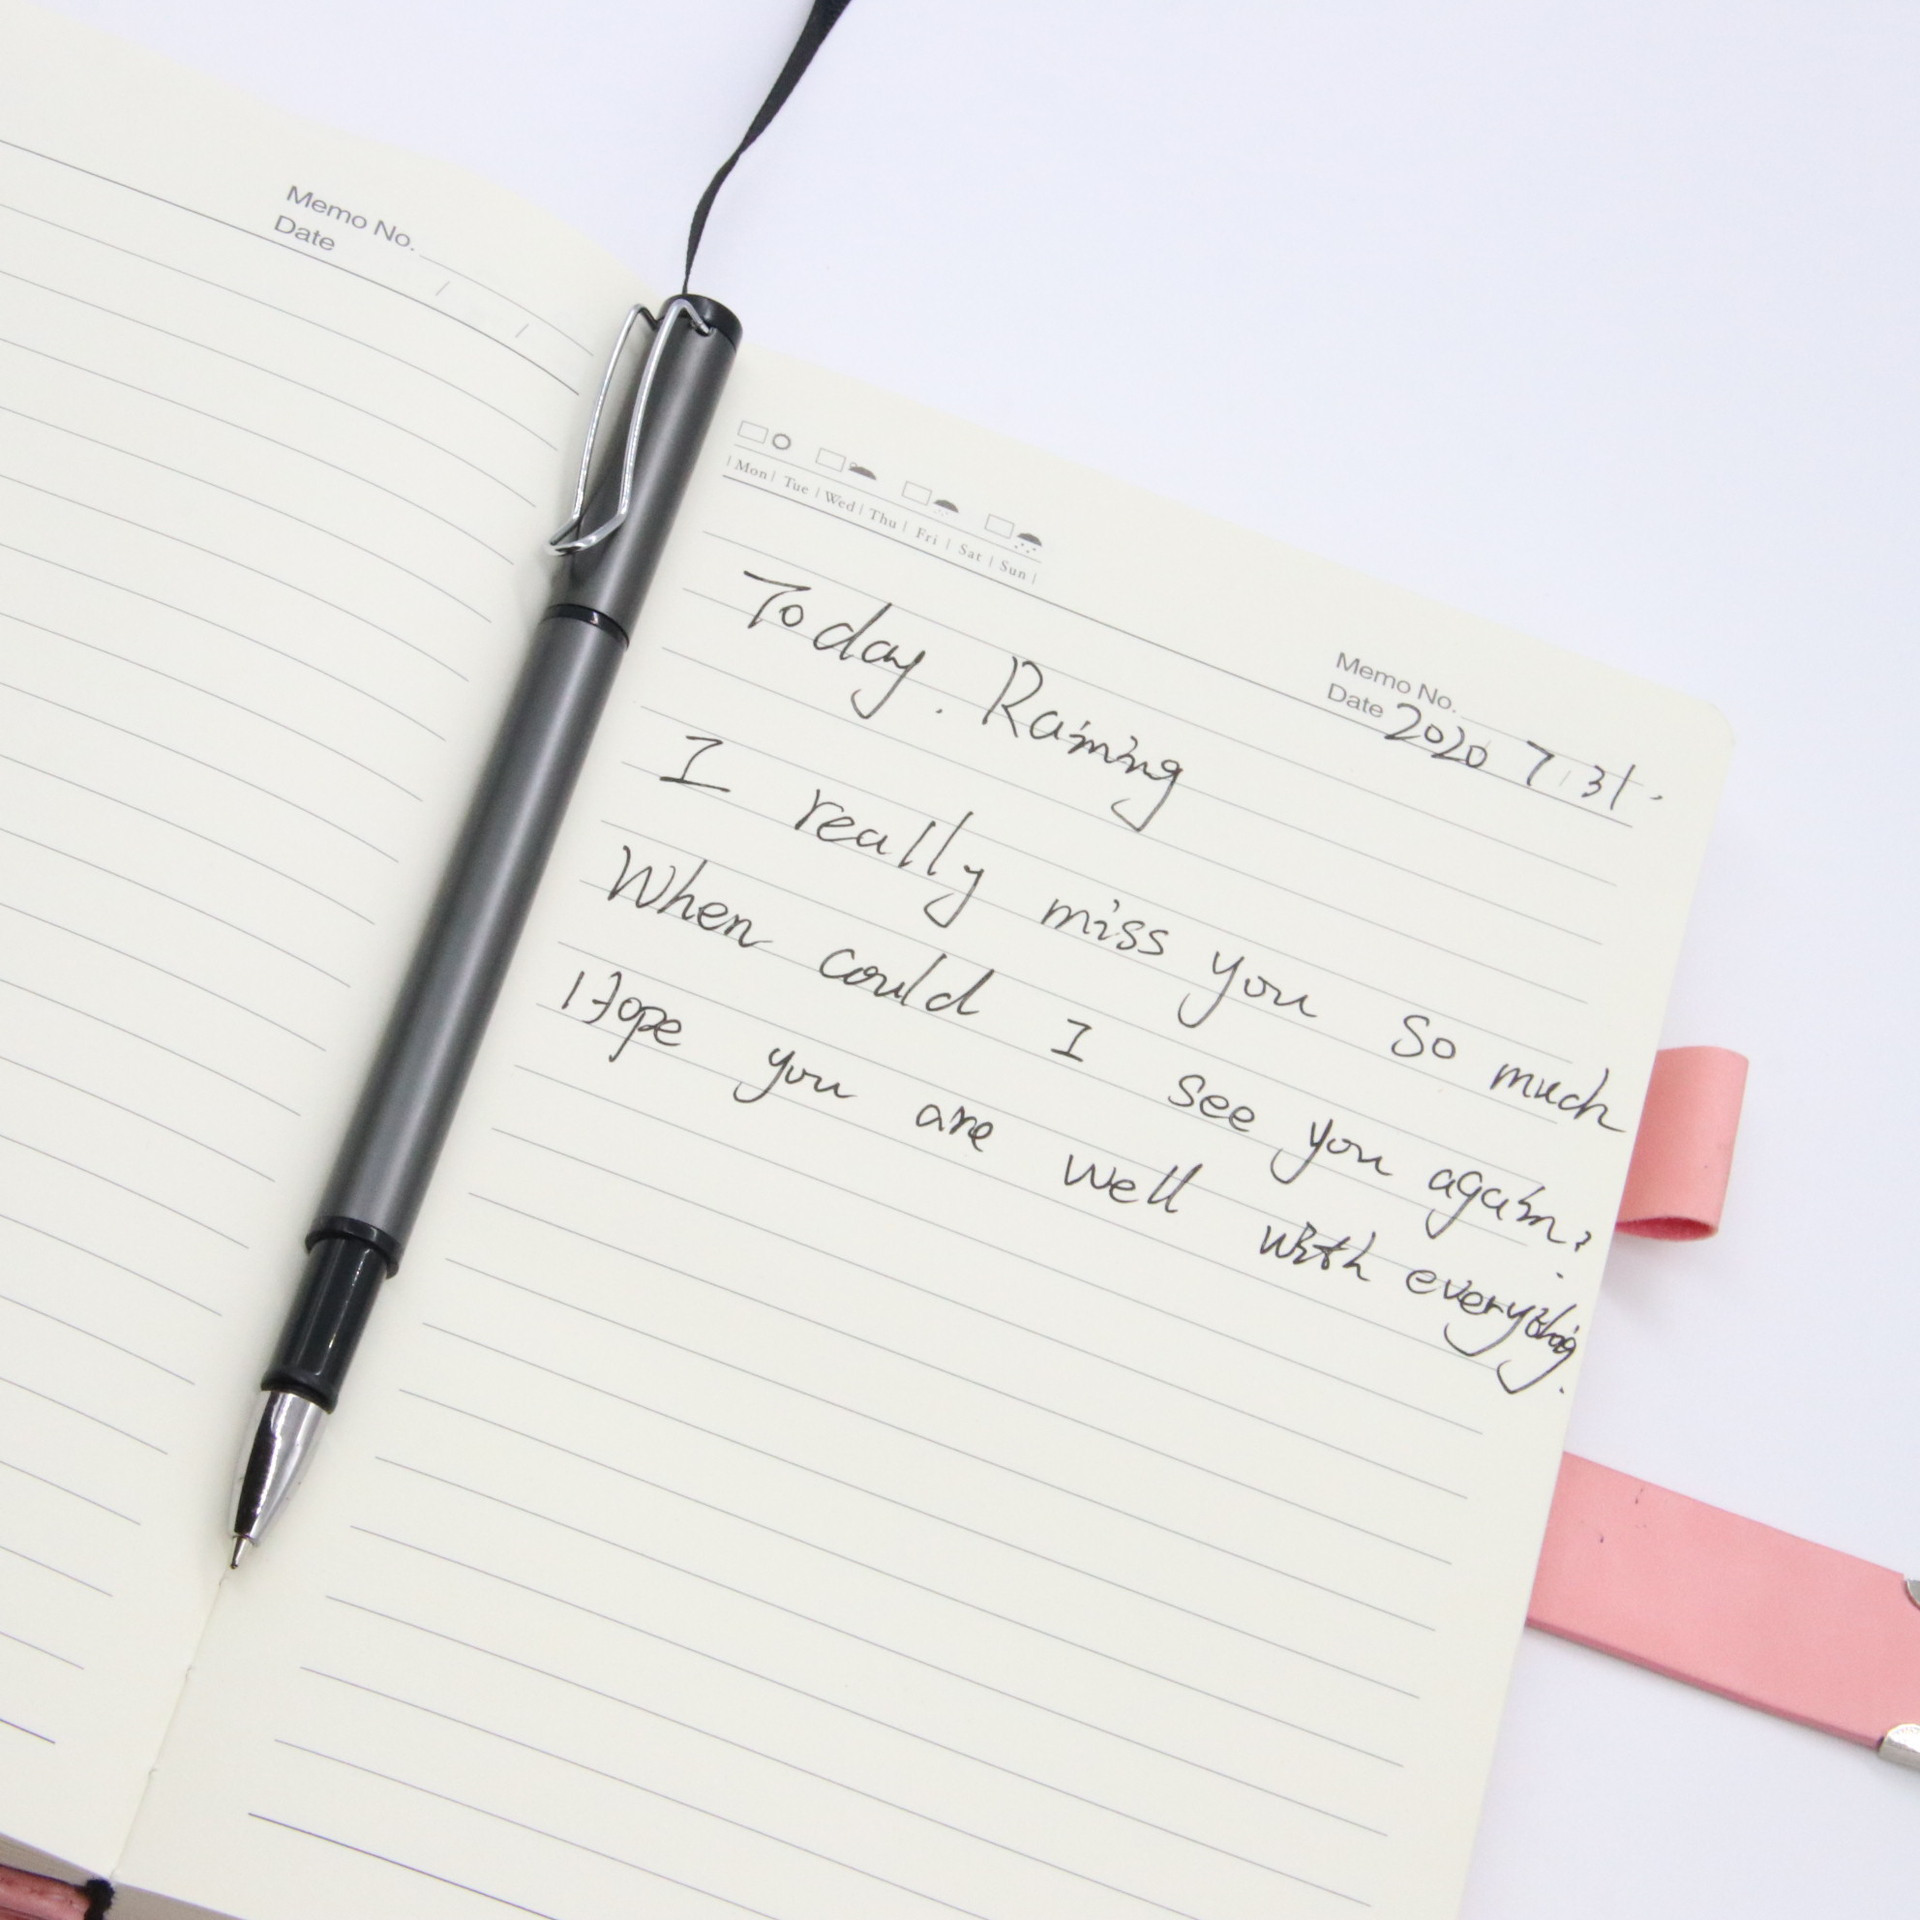 Memo No.
Date / /
Mon | Tue | Wed | Thu | Fri | Sat | Sun
Memo No.
Date 2020 7.31.
Today. Raining
I really miss you so much
When could I see you again?
Hope you are well with everything.